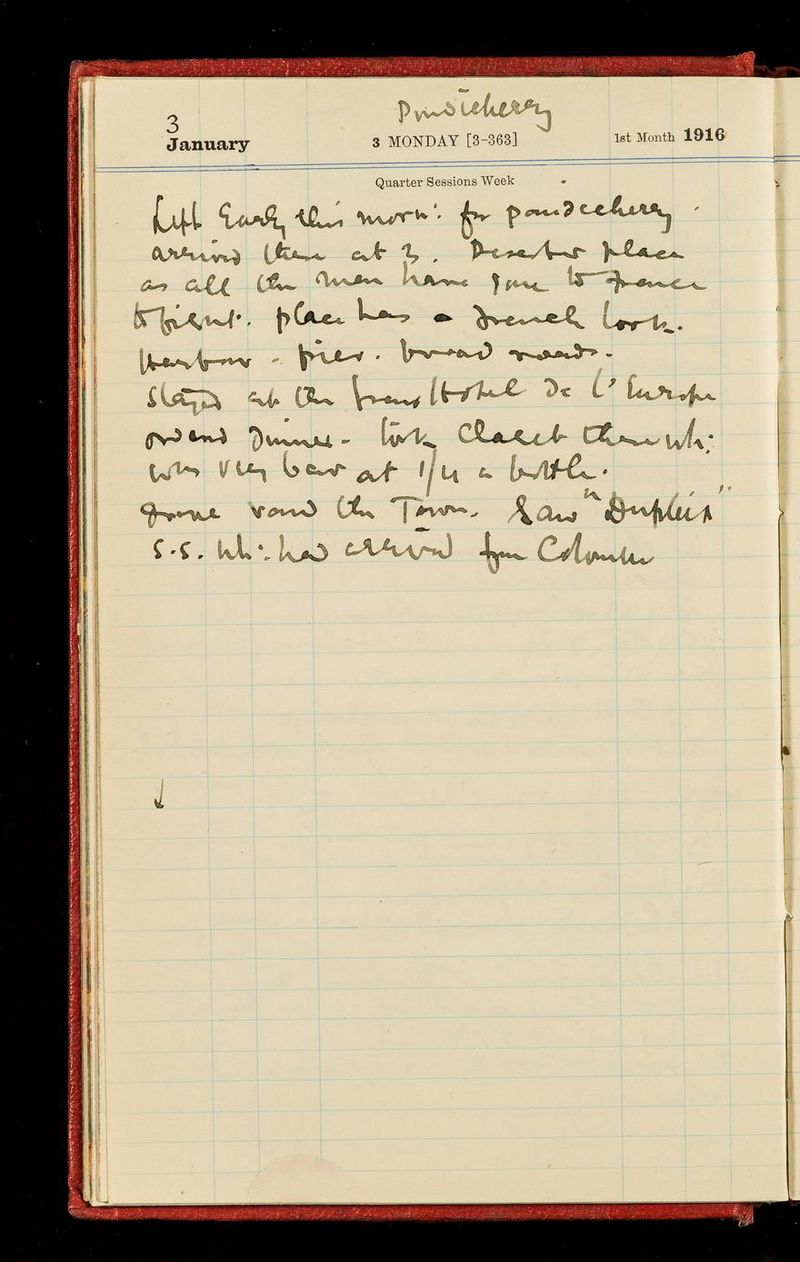 Pondicherry
3
January
3 MONDAY [3-363]
1st Month 1916
Quarter Sessions Week
Left Early this morn:. for pondecherry.
arrived there at 3. Deserted place
as all the men have gone to France
to fight. place has a French look.
Harbour - pier. broad roads.
Stayed at the Grand Hotel De L'Europe
and Dinner - took Claret there wh:
was very bad at 1/4 a bottle.
Drove round the Town. Saw "Dupleix"
S.S. wh:. had arrived from Colombo